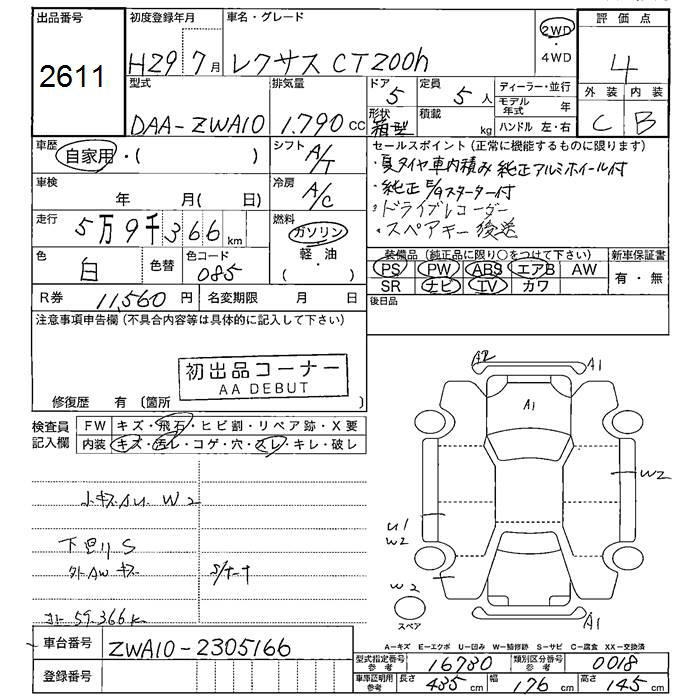 出品番号
2611
初度登録年月
H29 7月
車名・グレード
レクサス CT200h
2WD
・
4WD
評価点
4
外装 内装
C B
型式
DAA-ZWA10
排気量
1.790 CC
ドア
5
定員
5人
形状
箱型
積載
kg
ディーラー・並行
モデル年式 年
ハンドル 左・右
車歴
自家用・( )
シフト
A/T
車検
年 月( 日)
冷房
A/C
走行
5万9千366km
燃料
ガソリン
軽・油
( )
色
白
色替
色コード
085
R券 11,560円
名変期限 月 日
セールスポイント(正常に機能するものに限ります)
・夏タイヤ車内積み 純正アルミホイール付
・純正E/gスターター付
・ドライブレコーダー
・スペアキー 後送
装備品(純正品に限り○をつけて下さい)
PS PW ABS エアB AW
SR ナビ TV カワ
新車保証書
有・無
後日品
注意事項申告欄(不具合内容等は具体的に記入して下さい)
初出品コーナー
AA DEBUT
修復歴 有(箇所 )
検査員
記入欄
FW キズ・飛石・ヒビ割・リペア跡・X要
内装 キズ・汚レ・コゲ・穴・スレ・キレ・破レ
小キズAU W2
下廻りS
外AWキズ
コト 59.366K
A2
A1
A1
W2
U1
W2
W2
A1
スペア
車台番号 ZWA10-2305166
登録番号
A=キズ E=エクボ U=凹み W=補修跡 S=サビ C=腐食 XX=交換済
型式指定番号
参考
16780
類別区分番号
参考
0018
車庫証明用
参考
長さ 435 cm 幅 176 cm 高さ 145 cm